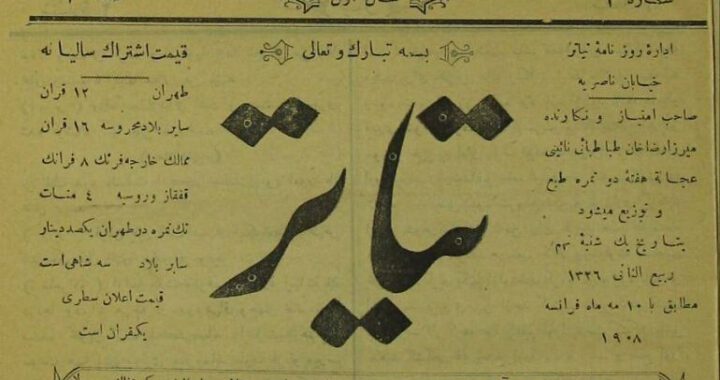 بسمه تبارك و تعالی
تیاتر
ادارهٔ روز نامهٔ تیاتر
خیابان ناصریه
صاحب امتیاز و نكارنده
میرزارضاخان طباطبائی نائینی
عجالة هفتهٔ دو نمره طبع
و توزیع میشود
بتاریخ یك شنبهٔ نهم
ربیع الثانی ۱۳۲۶
مطابق با ۱۰ مه ماه فرانسه
۱۹۰۸
قیمت اشتراك سالیانه
طهران ۱۲ قران
سایر بلادمحروسه ۱۶ قران
ممالك خارجه‌فرنك ۸ فرانك
قفقاز وروسیه ٤ منات
تك نمره در طهران یكصددینار
سایر بلاد سه شاهی است
قیمت اعلان سطری
یكقران است